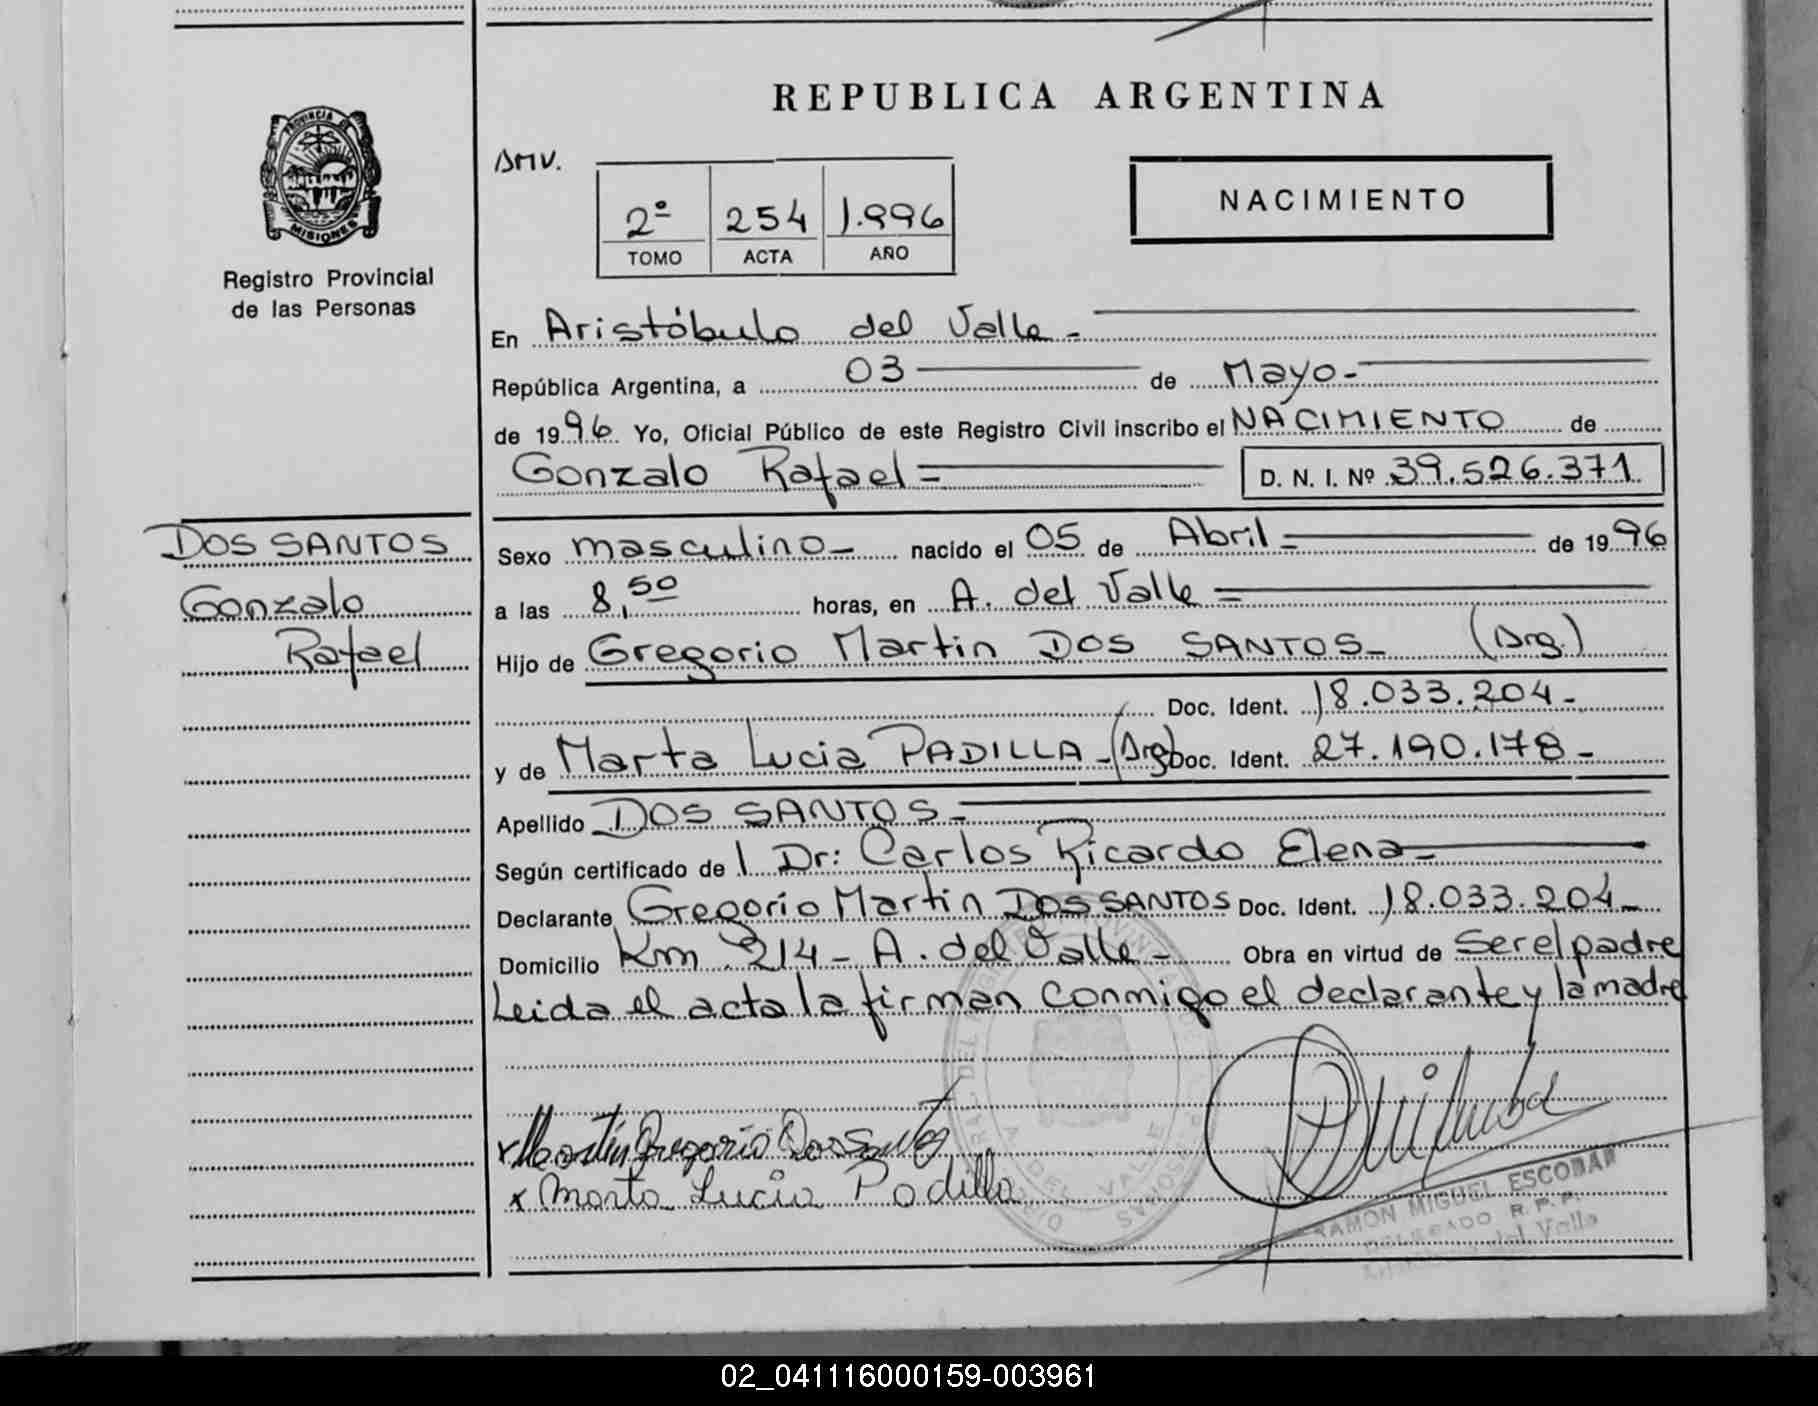 REPUBLICA ARGENTINA
PROVINCIA DE
MISIONES
Registro Provincial
de las Personas
AMV.
2º 254 1.996
TOMO ACTA AÑO
NACIMIENTO
En Aristóbulo del Valle -
República Argentina, a 03 de Mayo-
de 1996 Yo, Oficial Público de este Registro Civil inscribo el NACIMIENTO de
Gonzalo Rafael =
D. N. I. Nº 39.526.371
DOS SANTOS
Gonzalo
Rafael
Sexo masculino- nacido el 05 de Abril = de 1996
a las 8,50 horas, en A. del Valle =
Hijo de Gregorio Martin DOS SANTOS- (Arg.)
Doc. Ident. 18.033.204-
y de Marta Lucia PADILLA-(Arg) Doc. Ident. 27.190.178-
Apellido DOS SANTOS-
Según certificado de l Dr: Carlos Ricardo Elena-
Declarante Gregorio Martin DOS SANTOS Doc. Ident. 18.033.204-
Domicilio Km 214- A. del Valle- Obra en virtud de Ser el padre
Leida el acta la firman conmigo el declarante y la madre
x Martín Gregorio Dos Santos
x Marta Lucia Padilla
A. DEL VALLE
RAMON MIGUEL ESCOBAR
DELEGADO R.P.P.
Aristóbulo del Valle
02_041116000159-003961